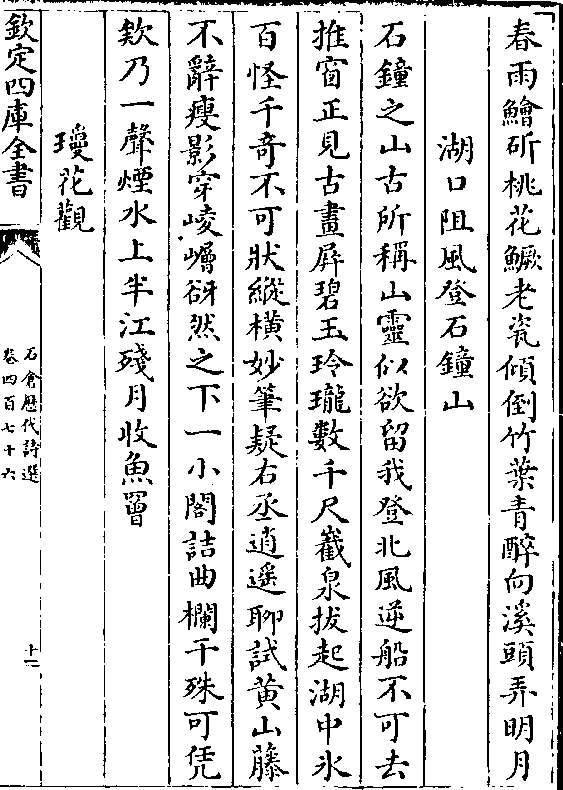 春雨鱠斫桃花鱖老瓷傾倒竹葉青醉向溪頭弄明月
湖口阻風登石鐘山
石鐘之山古所稱山靈似欲留我登北風逆船不可去
推窗正見古畫屏碧玉玲瓏數千尺巀泉拔起湖中氷
百怪千竒不可狀縱橫妙筆疑右丞逍遥聊試黄山藤
不辭瘦影穿崚嶒谺然之下一小閣詰曲欄干殊可凭
欸乃一聲煙水上半江殘月收魚罾
瓊花觀
欽定四庫全書
石倉歷代詩選
卷四百七十六
十二